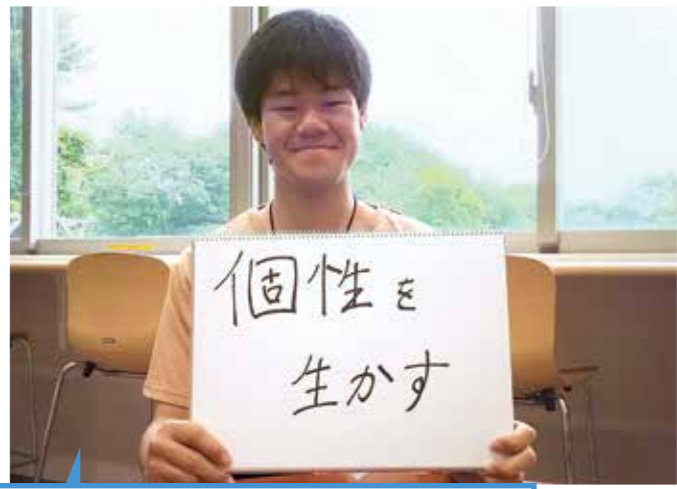 個性を
生かす